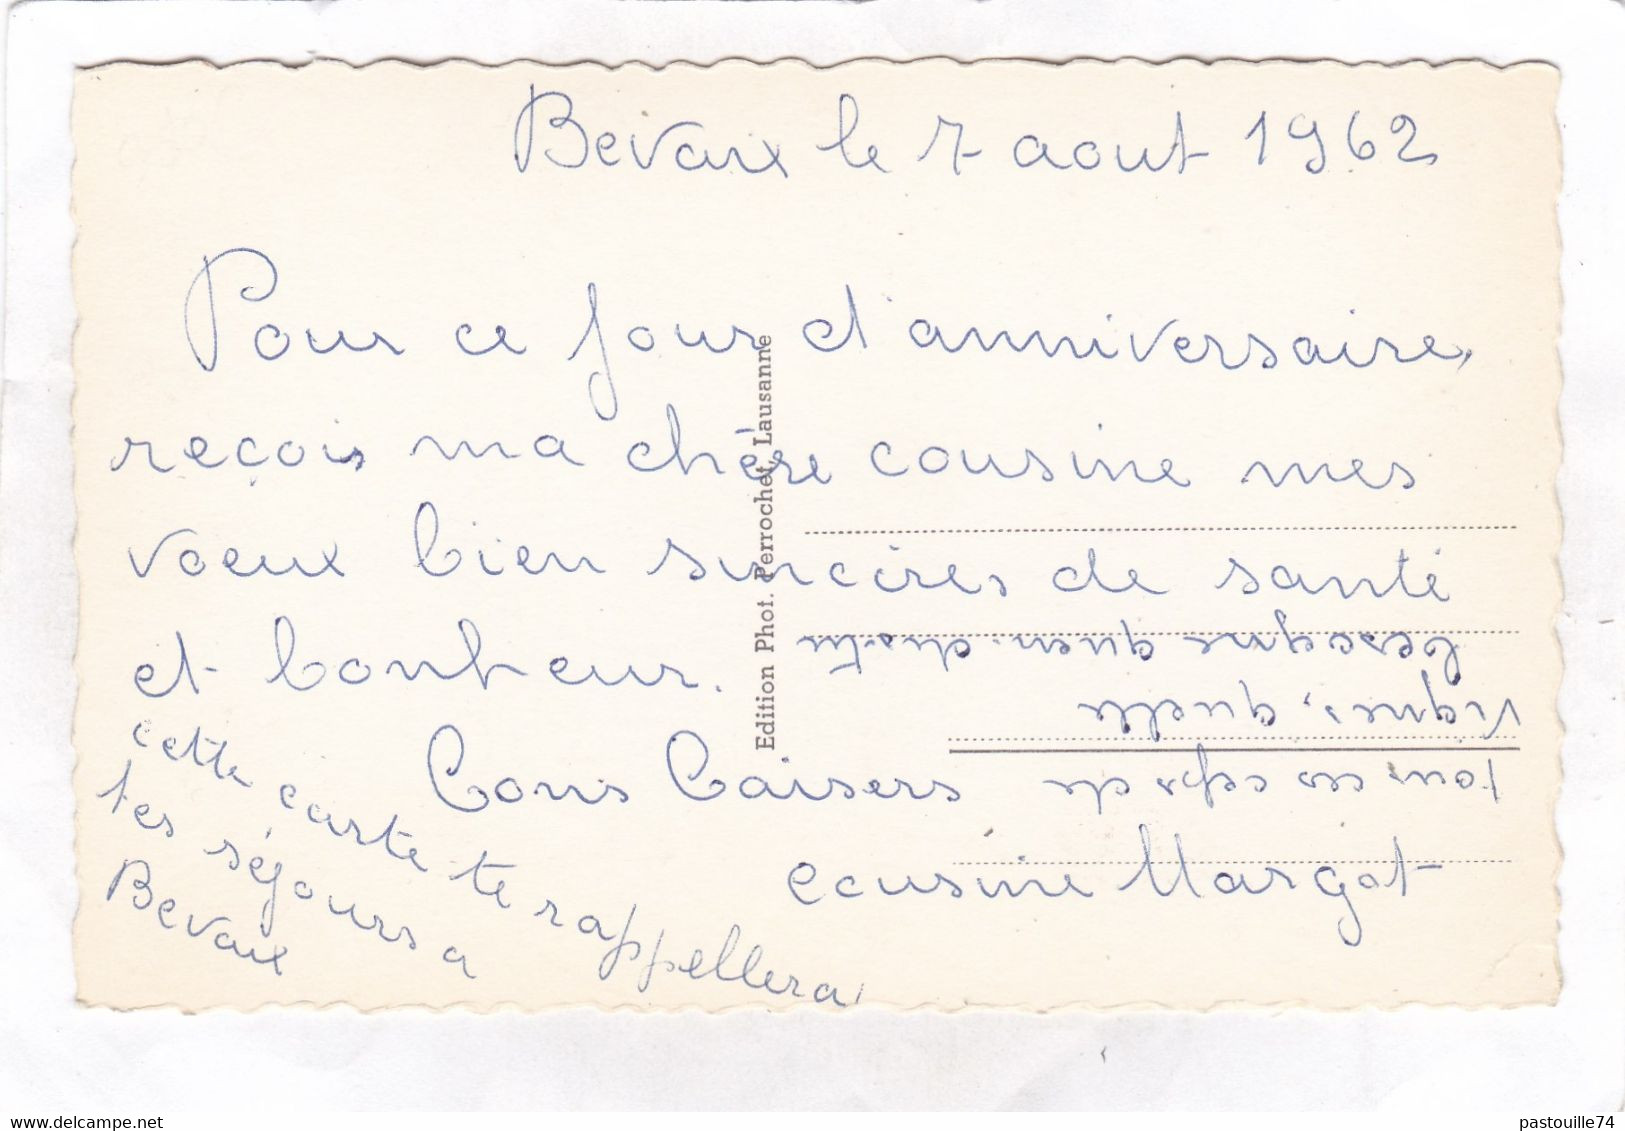 Bevaix le 7 aout 1962
Pour ce jour d'anniversaire,
reçois ma chère cousine mes
voeux bien sincères de santé
et bonheur.
Bons Baisers
cousine Margot
cette carte te rappellera
tes séjours a
Bevaix
Edition Phot. Perrochet, Lausanne
www.delcampe.net
pastouille74